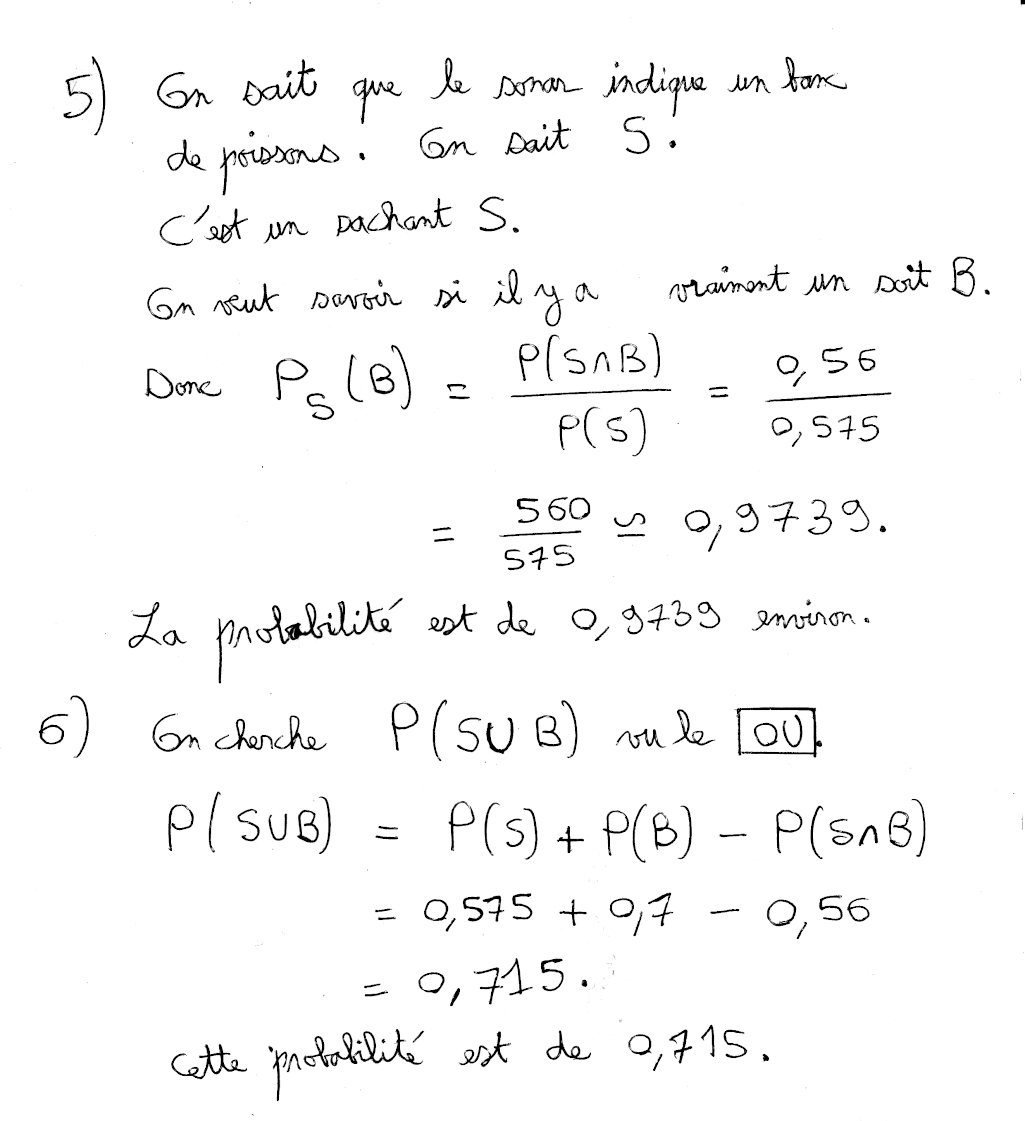 5) On sait que le sonar indique un banc
de poissons. On sait S.
C'est un sachant S.
On veut savoir si il y a vraiment un soit B.
Donc P_S(B) = P(S∩B)/P(S) = 0,56/0,575
= 560/575 ≃ 0,9739.
La probabilité est de 0,9739 environ.
6) On cherche P(S∪B) vu le OU.
P(S∪B) = P(S) + P(B) − P(S∩B)
= 0,575 + 0,7 − 0,56
= 0,715.
Cette probabilité est de 0,715.